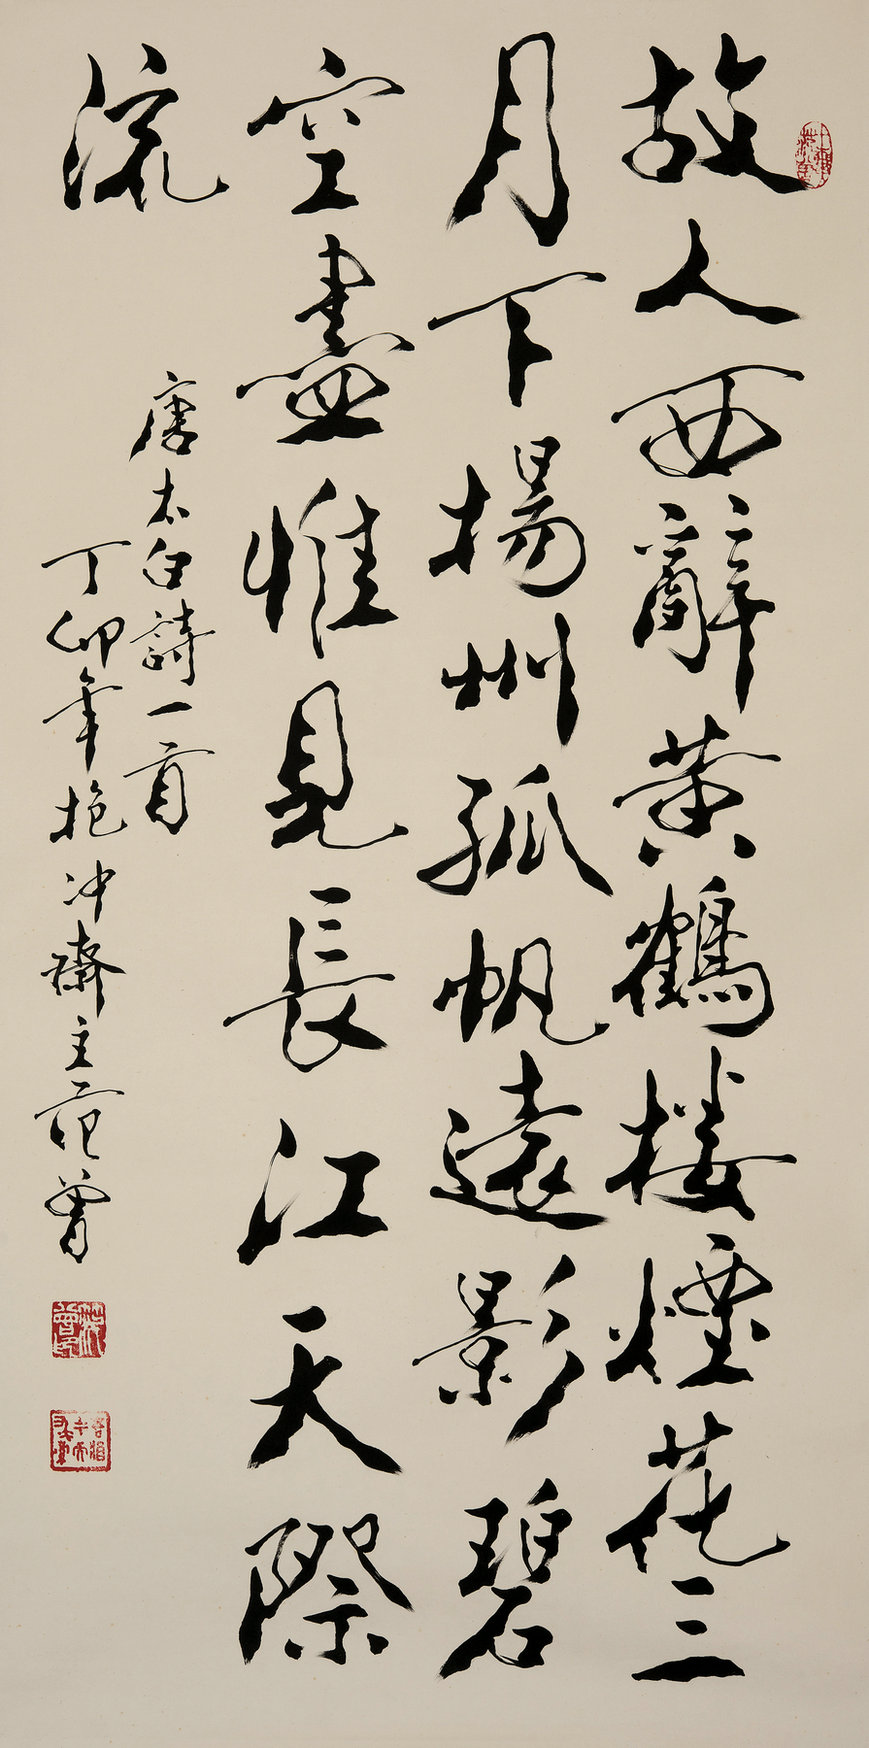 故人西辭黃鶴楼煙花三
月下揚州孤帆遠影碧
空盡惟見長江天際
流
唐太白詩一首
丁卯年抱冲齋主范曾